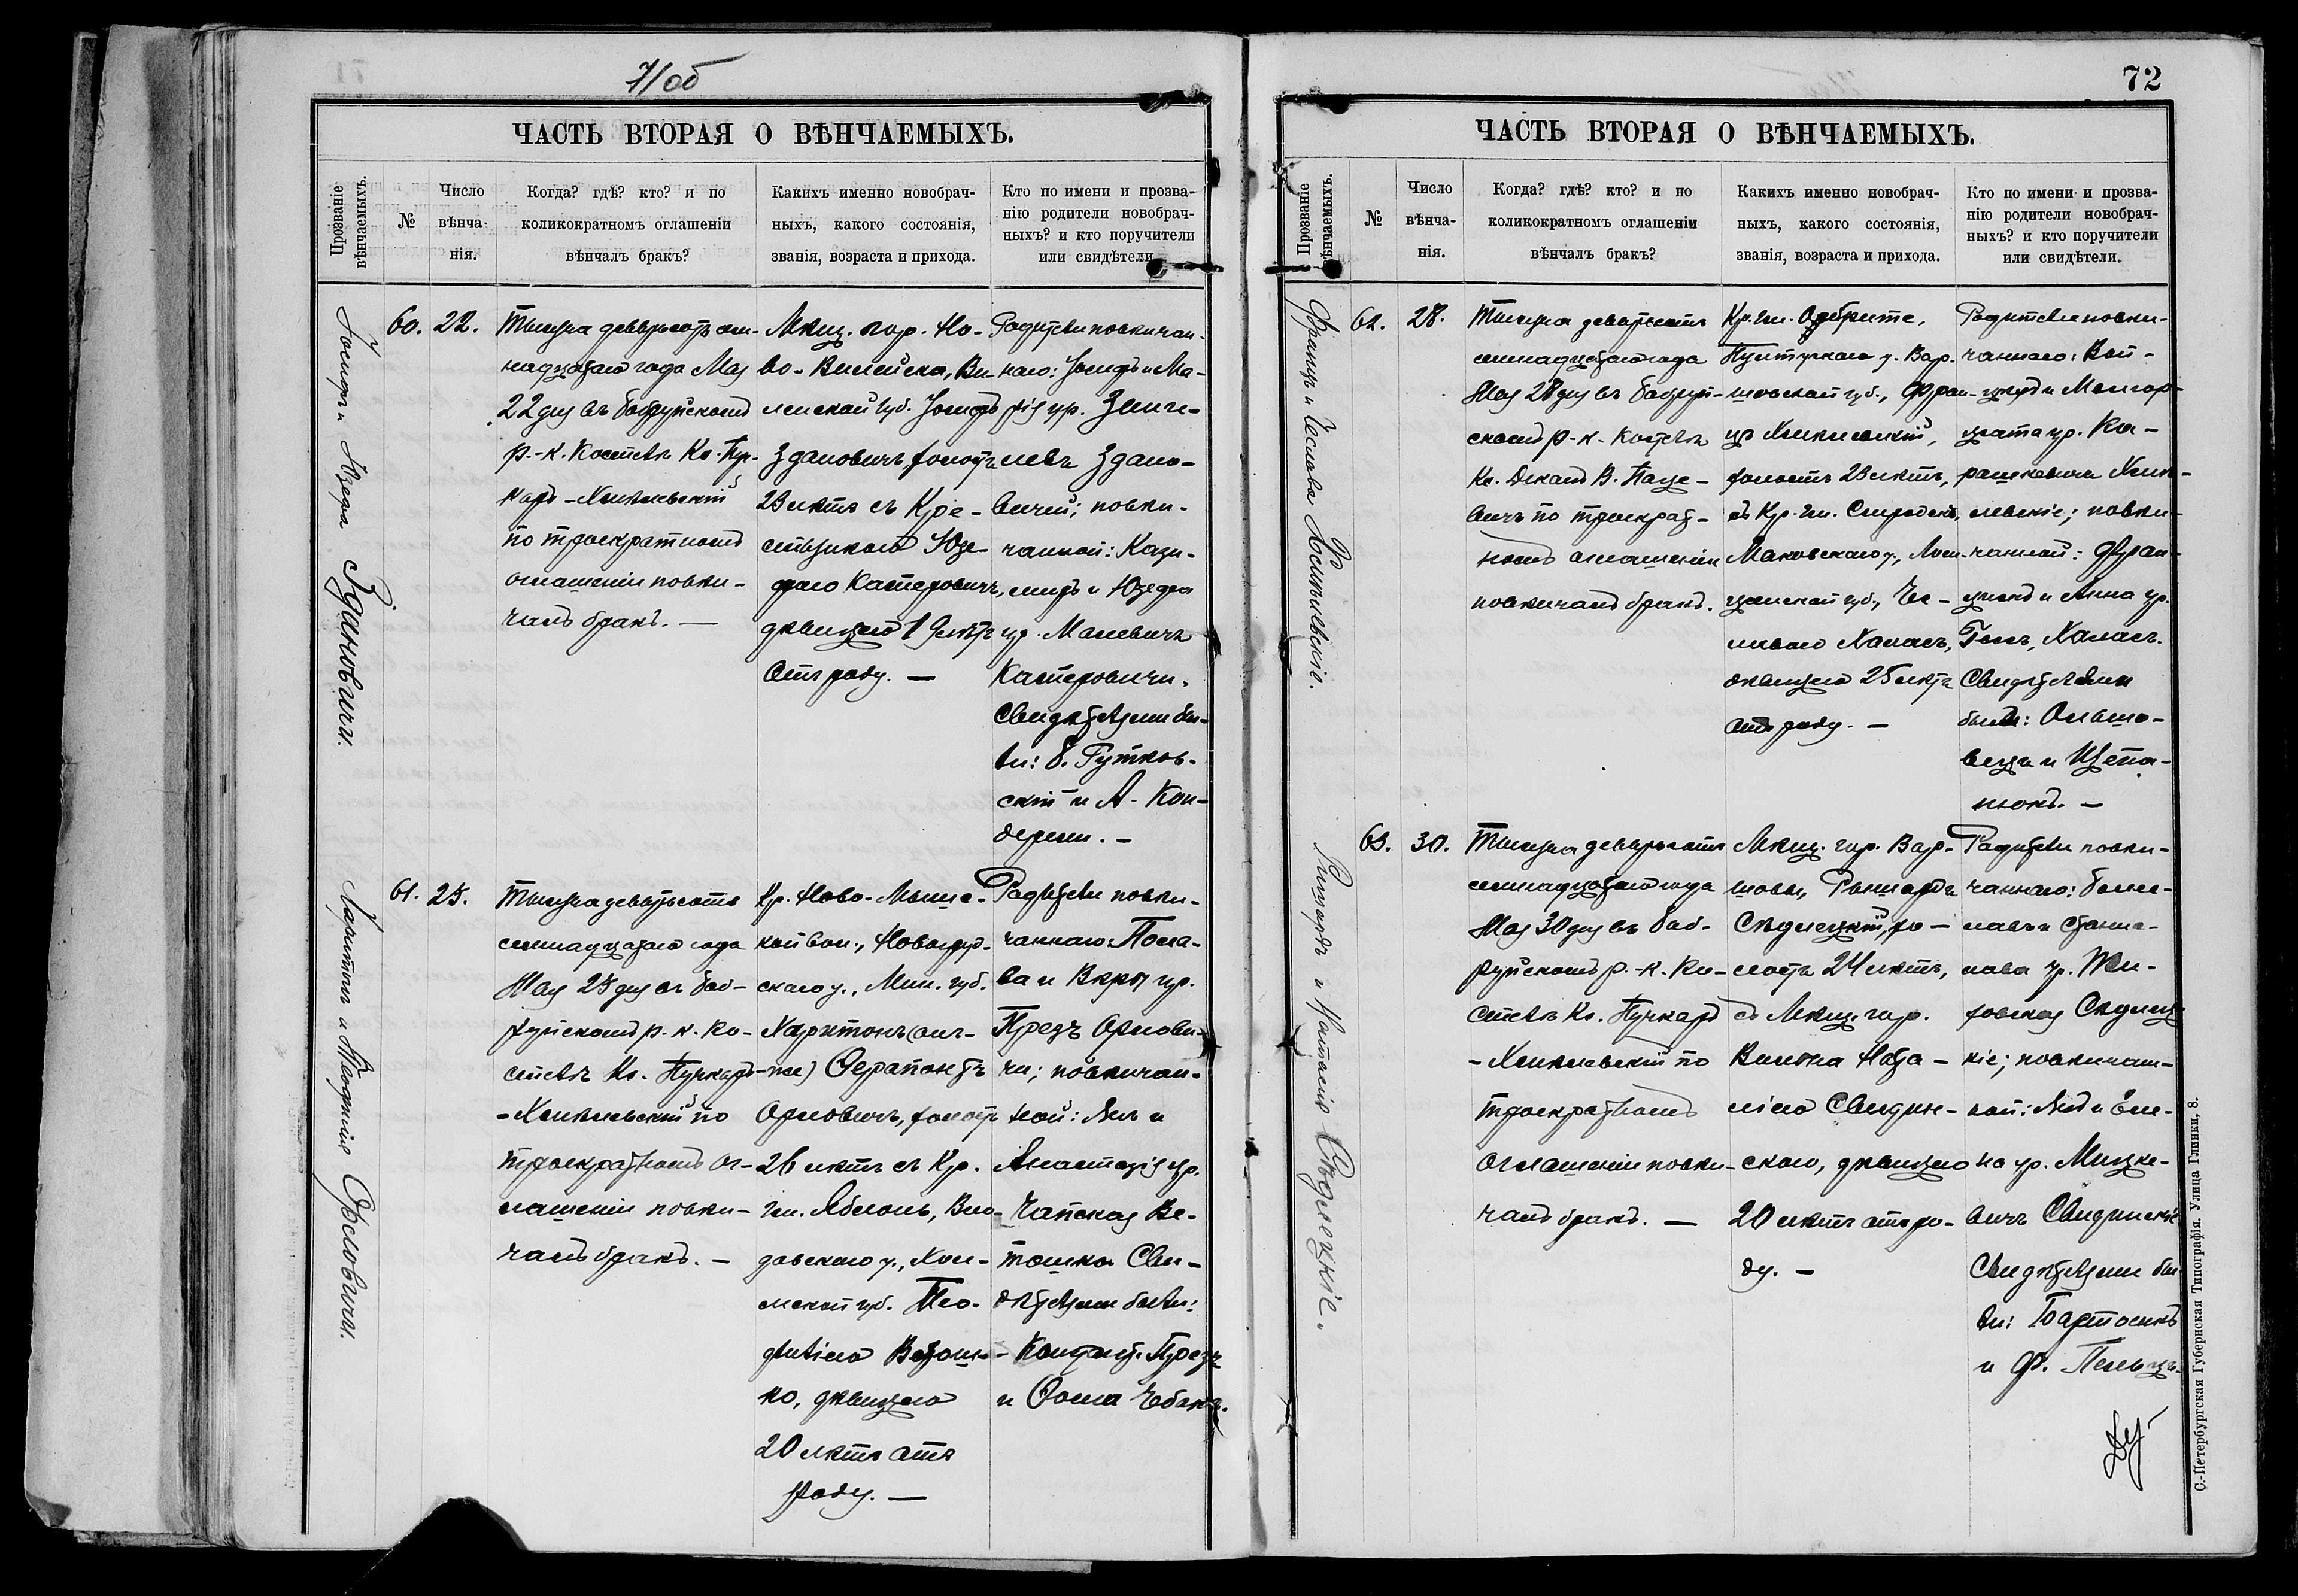 71об
ЧАСТЬ ВТОРАЯ О ВѢНЧАЕМЫХЪ.
Прозваніе вѣнчаемыхъ.
№
Число вѣнча- нія.
Когда? гдѣ? кто? и по
коликократномъ оглашеніи
вѣнчалъ бракъ?
Какихъ именно новобрач-
ныхъ, какого состоянія,
званія, возраста и прихода.
Кто по имени и прозва-
нію родители новобрач-
ныхъ? и кто поручители
или свидѣтели
Здановичи.
60.
22.
Тысяча девятьсотъ сем-
надцатаго года Мая
22 дня въ Бобруйскомъ
р.-к. Костелѣ Кс. Пу-
каръ-Хмѣлевскій
по троекратномъ
оглашеніи повѣн-
чалъ бракъ. —
Мѣщ. гор. Но-
во-Вилейска, Ви-
ленской губ. Іосифъ
Здановичъ, холостъ
23 лѣтъ съ Кре-
стьянкою Юзе-
фою Катеровичъ,
дѣвицею 19 лѣтъ
отъ роду. —
Родители повѣнчан-
наго: Іосифъ и Ма-
рія ур.
левъ Здано-
вичи; повѣн-
чанной: Кази-
миръ и Юзефа
ур. Малевичъ
Катеровичи.
Свидѣтелями бы-
ли: Б. Рутков-
скій и А. Кон-
Харитонъ и Теофилія Орловичи.
61.
25.
Тысяча девятьсотъ
семнадцатаго года
Мая 25 дня въ Боб-
руйскомъ р.-к. Ко-
стелѣ Кс. Пункаръ
-Хмѣлевскій по
троекратномъ ог-
лашеніи повѣн-
чалъ бракъ. —
Кр. Ново-Мыш-
ской вол., Новогруд-
скаго у., Мин. губ.
Харитонъ (онъ-
же) Ѳерапонтъ
Орловичъ, холостъ
26 лѣтъ съ Кр.
гм. Яблонь, Вло-
давскаго у., Хол-
мской губ. Тео-
филіею Ветош-
ко, дѣвицею
20 лѣтъ отъ
роду. —
Родители повѣн-
чаннаго:
ва и Вѣры ур.
Презъ Орлови-
чи; повѣнчан-
ной: Янъ и
Анастазія ур.
Чапская Ве-
тошко. Сви-
дѣтелями были:
Презъ
и Ѳома
72
ЧАСТЬ ВТОРАЯ О ВѢНЧАЕМЫХЪ.
Прозваніе вѣнчаемыхъ.
№
Число вѣнча- нія.
Когда? гдѣ? кто? и по
коликократномъ оглашеніи
вѣнчалъ бракъ?
Какихъ именно новобрач-
ныхъ, какого состоянія,
званія, возраста и прихода.
Кто по имени и прозва-
нію родители новобрач-
ныхъ? и кто поручители
или свидѣтели.
Францъ и Чеслава Хмѣлевскіе.
62.
28.
Тысяча девятьсотъ
семнадцатаго года
Мая 28 дня въ Бобруй-
скомъ р.-к. Костелѣ
Кс. Деканъ В. Паце-
вичъ по троекрат-
номъ оглашеніи
повѣнчалъ бракъ.
Кр. гм.
Пултускаго у. Вар-
шавской губ., Фран-
цъ Хмѣлевскій,
холостъ 23 лѣтъ,
съ Кр. гм.
Маковскаго у., Лом-
жинской губ., Чес-
лавою Халасъ,
дѣвицею 25 лѣтъ
отъ роду. —
Родители повѣн-
чаннаго: Вой-
цѣхъ и Малгор-
жата ур. Ка-
рашкевичъ Хмѣ-
левскіе; повѣн-
чанной: Фран-
цискъ и Анна ур.
Халасъ.
Свидѣтелями
были: Ольшо-
вецъ и Щепа-
нюкъ. —
Рышардъ и Наталія Сѣдлецкіе.
63.
30.
Тысяча девятьсотъ
семнадцатаго года
Мая 30 дня въ Боб-
руйскомъ р.-к. Ко-
стелѣ Кс. Пункаръ
-Хмѣлевскій по
троекратномъ
оглашеніи повѣн-
чалъ бракъ. —
Мѣщ. гор. Вар-
шавы, Рышардъ
Сѣдлецкій, хо-
лостъ 24 лѣтъ,
съ Мѣщ. гор.
Вильна Ната-
ліею Свидин-
скою, дѣвицею
20 лѣтъ отъ ро-
ду. —
Родители повѣн-
чаннаго: Боле-
славъ и Стани-
слава ур.
ховская Сѣдлец-
кіе; повѣнчан-
ной: Янъ и Еле-
на ур. Мицке-
вичъ Свидинскіе
Свидѣтелями бы-
ли: Бартосикъ
и Ф.
С.-Петербургская Губернская Типографія. Улица Глинки, 8.